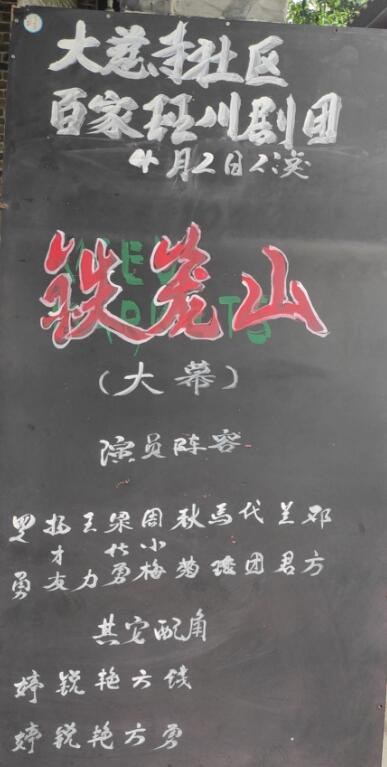 大慈寺社区
百家班川剧团
4月2日公演
铁笼山
(大幕)
演员阵容
罗扬王梁周秋马代兰邓
才 小
勇友力勇梅菊团君方
其它配角
婷锐艳方钱
婷锐艳方勇